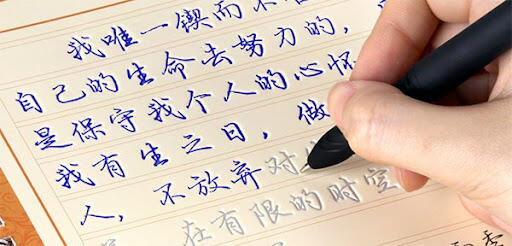 我唯一锲而不舍
自己的生命去努力的，
是保守我个人的心怀
我有生之日，做
人，不放弃对
在有限的时空